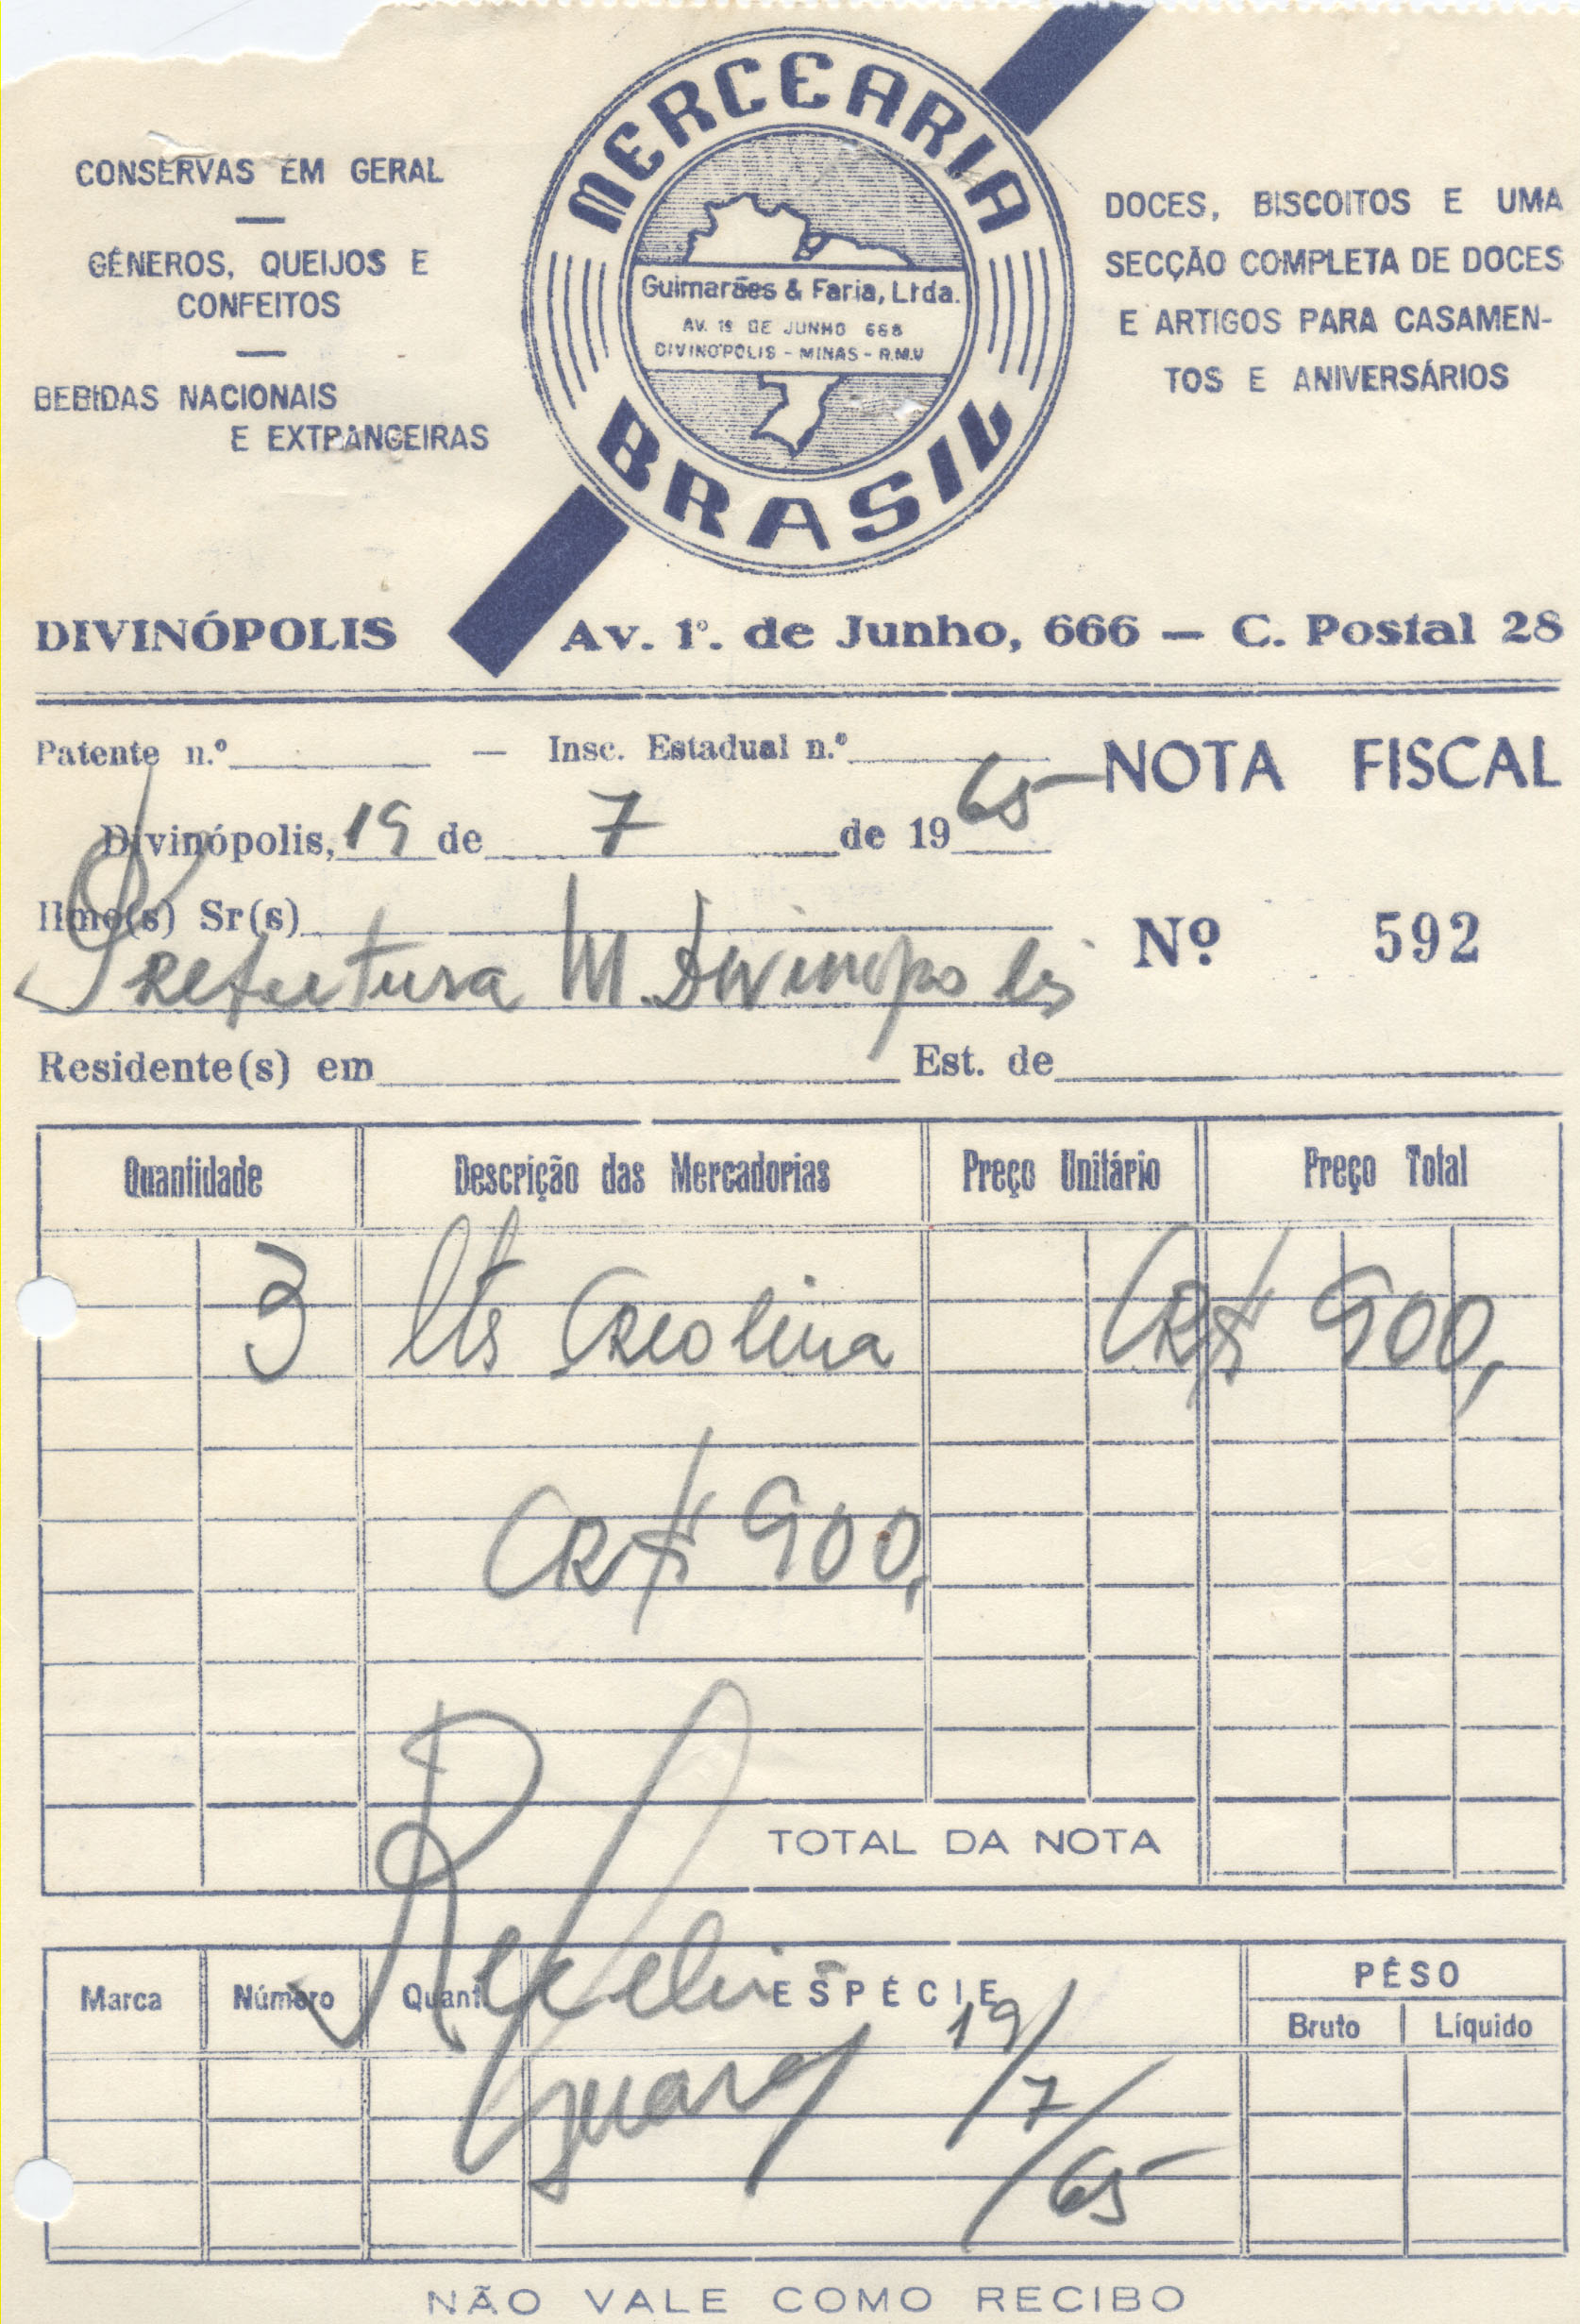 MERCEARIA
BRASIL
Guimarães & Faria, Ltda.
AV. 1º DE JUNHO 666
DIVINÓPOLIS - MINAS - R.M.V
CONSERVAS EM GERAL
GÊNEROS, QUEIJOS E
CONFEITOS
BEBIDAS NACIONAIS
E EXTRANGEIRAS
DOCES, BISCOITOS E UMA
SECÇÃO COMPLETA DE DOCES
E ARTIGOS PARA CASAMEN-
TOS E ANIVERSÁRIOS
DIVINÓPOLIS Av. 1º. de Junho, 666 — C. Postal 28
Patente n.º — Insc. Estadual n.º
NOTA FISCAL
Divinópolis, 19 de 7 de 1965
Ilmo(s) Sr(s)
Nº 592
Prefeitura M. Divinopolis
Residente(s) em Est. de
Quantidade Descrição das Mercadorias Preço Unitário Preço Total
3 lts Creolina CR$ 900,
CR$ 900,
TOTAL DA NOTA
Recebi
Marca Número Quant. ESPÉCIE PÊSO
Bruto Líquido
19/7/65
NÃO VALE COMO RECIBO